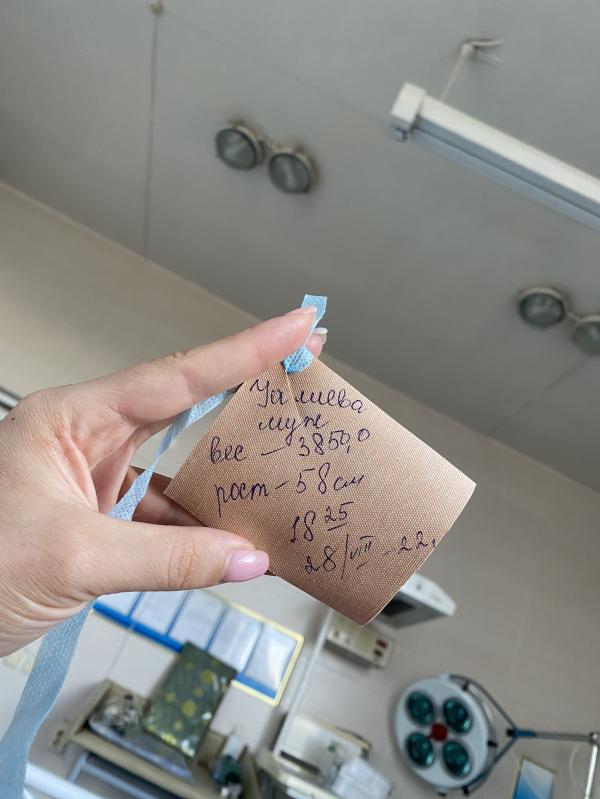 Уалиева
муж
вес – 3850,0
рост – 58 см
18 25
28/VIII – 22г